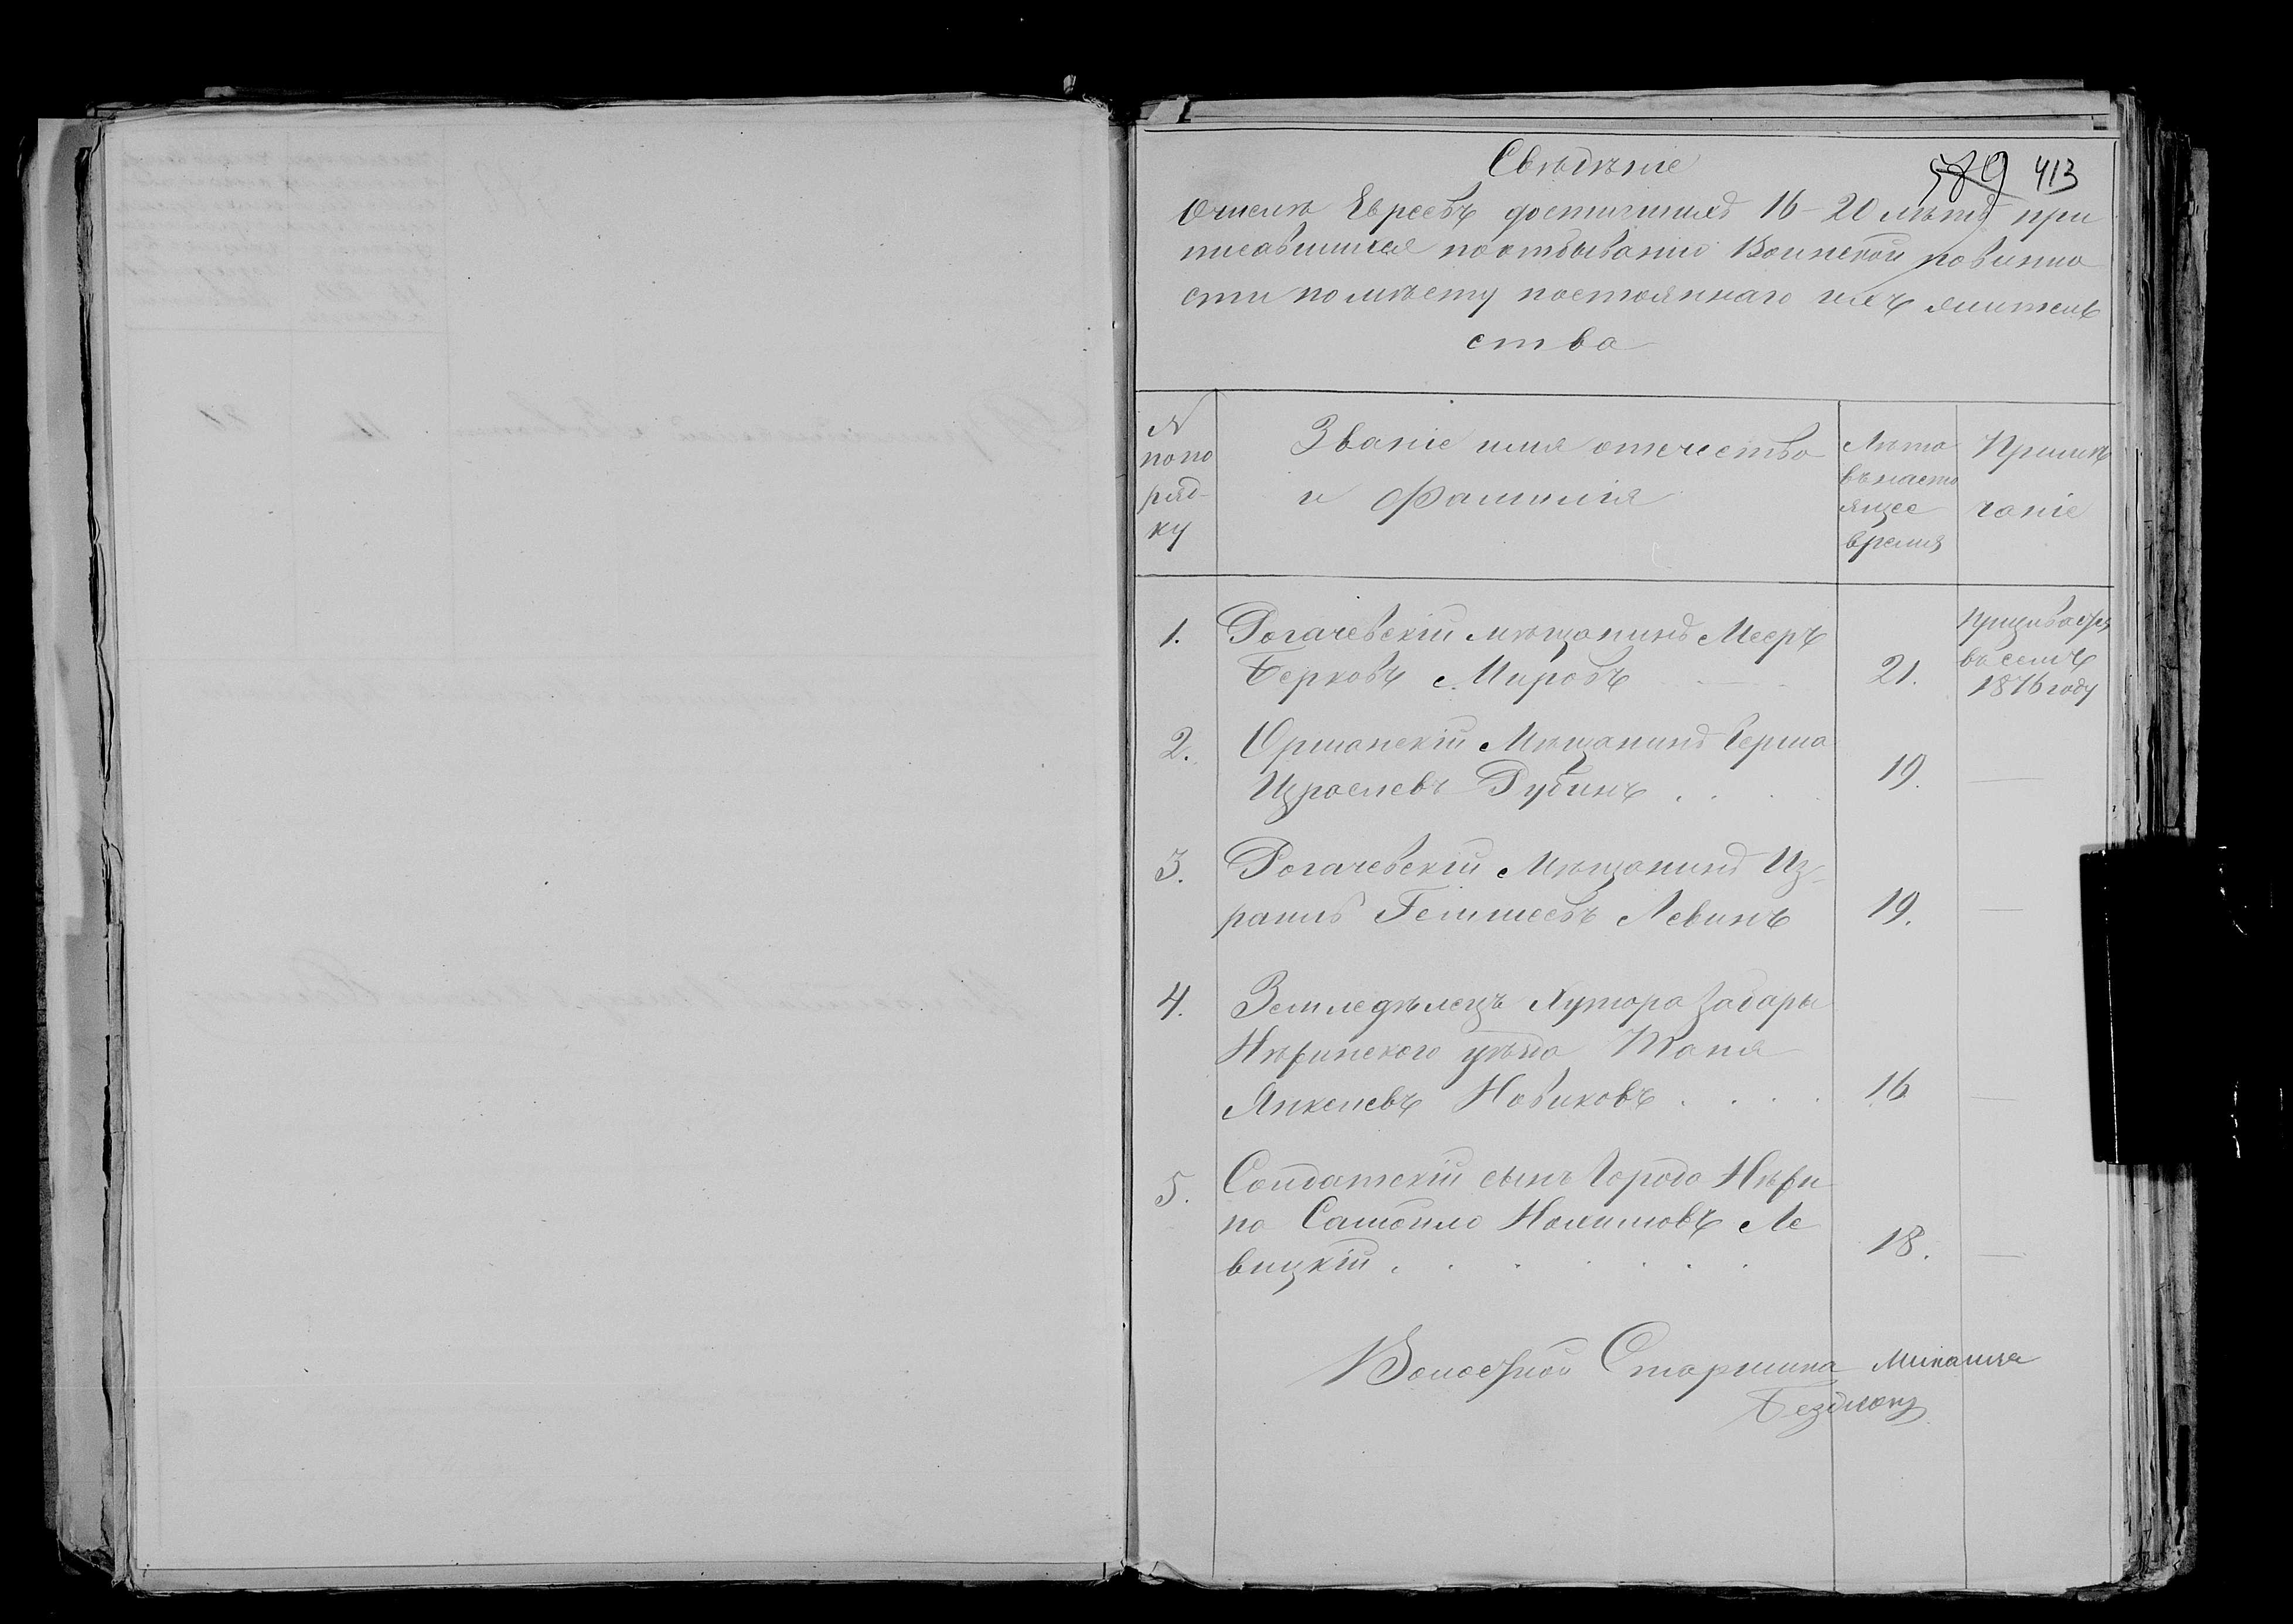 Свѣдѣніе
589 413
О числѣ Евреевъ достигшихъ 16-20 лѣтъ при
писавшихся по отбыванію Воинской повинно
сти по мѣсту постояннаго ихъ житель
ства
№
по по
ряд-
ку
Званіе имя отечество
и Фамилія
Лѣта
въ насто
ящее
время
Примѣ
чаніе
1.
Рогачевскій мѣщанинъ Мееръ
Берковъ Мировъ
21.
призывается
въ семъ
1876 году
2.
Оршанскій Мѣщанинъ Герша
Израелевъ Рубинъ . . .
19.
3.
Рогачевскій Мѣщанинъ Из-
раиль Левинъ
19.
4.
Земледѣлецъ Хутора Забары
Нѣжинскаго уѣзда
Янкелевъ Новиковъ . . . .
16
5.
Солдатскій сынъ Города Нѣжи
на Самойло Нохимовъ Ле
вицкій . . . . . . .
18.
Волостной Старшина